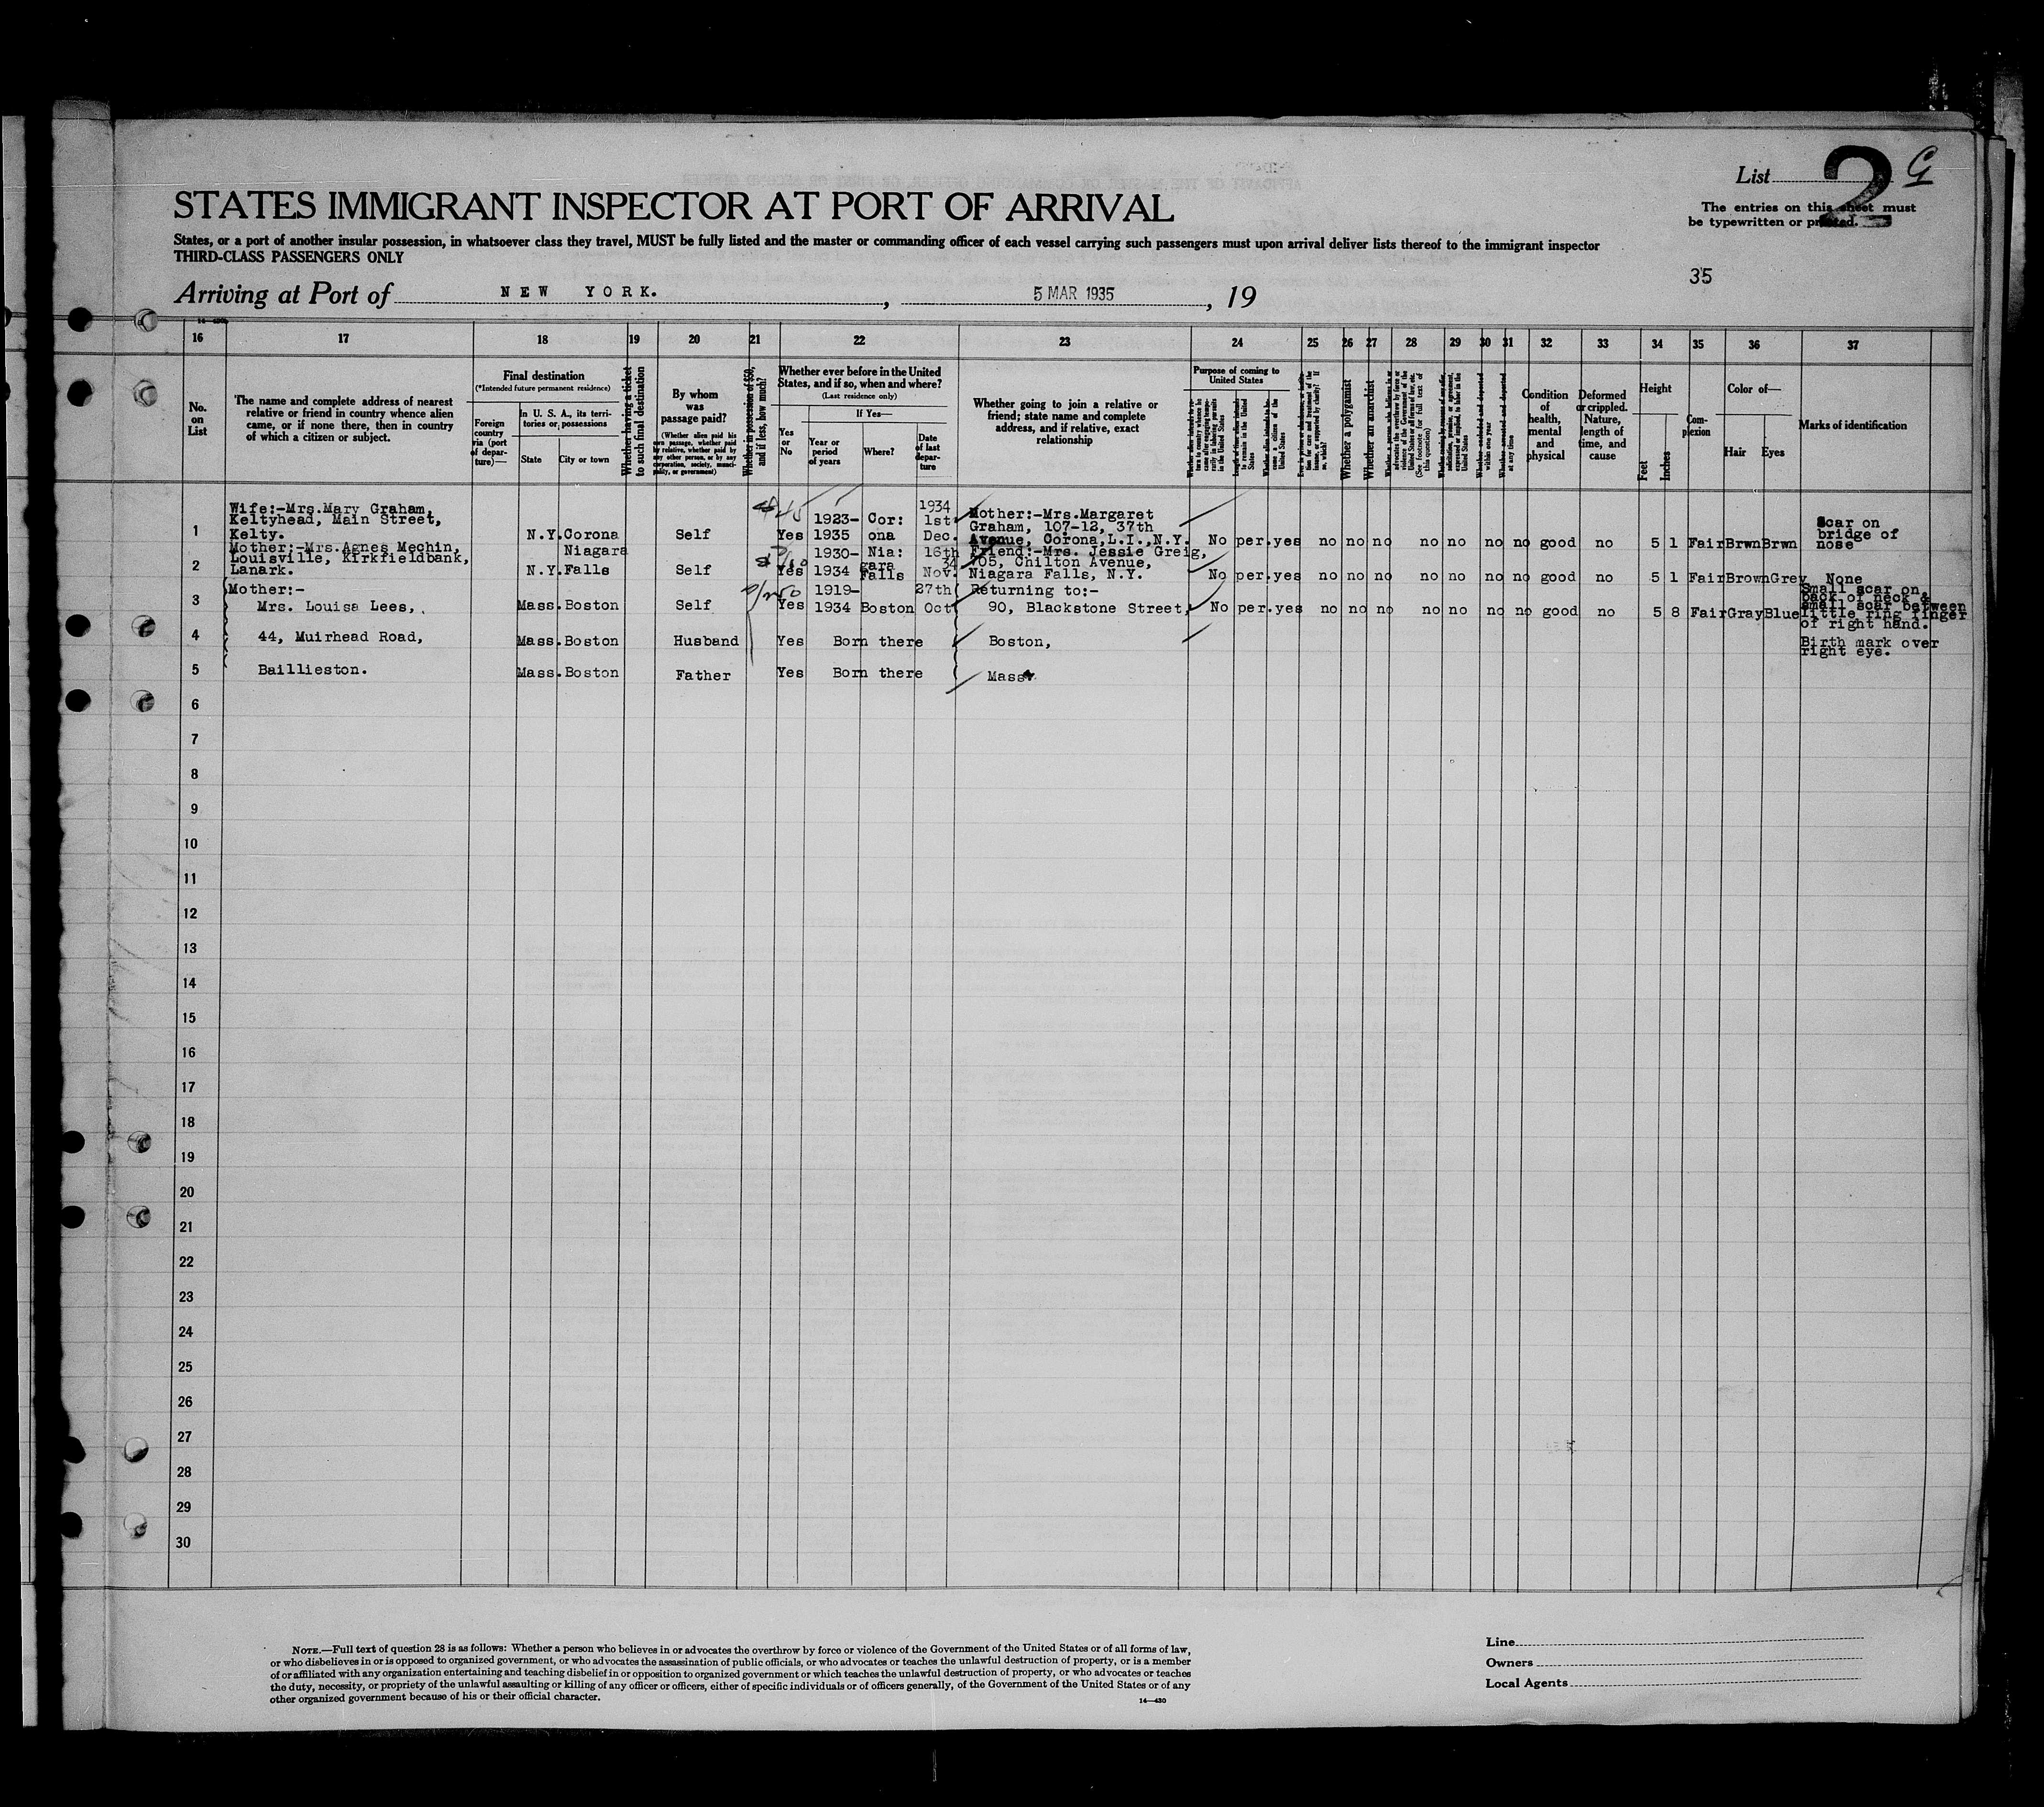 List 2 G
The entries on this sheet must
be typewritten or printed.
STATES IMMIGRANT INSPECTOR AT PORT OF ARRIVAL
States, or a port of another insular possession, in whatsoever class they travel, MUST be fully listed and the master or commanding officer of each vessel carrying such passengers must upon arrival deliver lists thereof to the immigrant inspector
THIRD-CLASS PASSENGERS ONLY
35
Arriving at Port of NEW YORK. , 5 MAR 1935 , 19
16 17 18 19 20 21 22 23 24 25 26 27 28 29 30 31 32 33 34 35 36 37
No.
on
List
The name and complete address of nearest
relative or friend in country whence alien
came, or if none there, then in country
of which a citizen or subject.
Final destination
(*Intended future permanent residence)
Foreign
country
via (port
of depar-
ture)—
In U. S. A., its terri-
tories or possessions
State City or town
Whether having a ticket
to such final destination
By whom
was
passage paid?
(Whether alien paid his
own passage, whether paid
by relative, whether paid by
any other person, or by any
corporation, society, munici-
pality, or government)
Whether in possession of $50,
and if less, how much?
Whether ever before in the United
States, and if so, when and where?
(Last residence only)
Yes
or
No
If Yes—
Year or
period
of years
Where?
Date
of last
depar-
ture
Whether going to join a relative or
friend; state name and complete
address, and if relative, exact
relationship
Purpose of coming to
United States
Whether a polygamist
Whether an anarchist
(See footnote for full text of
this question)
Condition
of
health,
mental
and
physical
Deformed
or crippled.
Nature,
length of
time, and
cause
Height
Feet Inches
Com-
plexion
Color of—
Hair Eyes
Marks of identification
1
Wife:-Mrs.Mary Graham,
Keltyhead, Main Street,
Kelty.
N.Y. Corona Self Yes
1923-
1935
Cor:
ona
1934
1st
Dec.
Mother:-Mrs.Margaret
Graham, 107-12, 37th
Avenue, Corona,L.I.,N.Y.
No per. yes no no no no no no no good no 5 1 Fair Brwn Brwn
Scar on
bridge of
nose
2
Mother:-Mrs.Agnes Mechin,
Louisville, Kirkfieldbank,
Lanark.
N.Y.
Niagara
Falls
Self Yes
1930-
1934
Nia:
gara
Falls
16th
34
Nov.
Friend:-Mrs. Jessie Greig,
705, Chilton Avenue,
Niagara Falls, N.Y.
No per. yes no no no no no no no good no 5 1 Fair Brown Grey None
3
Mother:-
Mrs. Louisa Lees,
Mass. Boston Self Yes
1919-
1934
Boston
27th
Oct
Returning to:-
90, Blackstone Street,
No per. yes no no no no no no no good no 5 8 Fair Gray Blue
Small scar on
back of neck &
small scar between
little ring finger
of right hand.
4 44, Muirhead Road, Mass. Boston Husband Yes Born there Boston,
Birth mark over
right eye.
5 Baillieston. Mass. Boston Father Yes Born there Mass.
6
7
8
9
10
11
12
13
14
15
16
17
18
19
20
21
22
23
24
25
26
27
28
29
30
NOTE.—Full text of question 28 is as follows: Whether a person who believes in or advocates the overthrow by force or violence of the Government of the United States or of all forms of law,
or who disbelieves in or is opposed to organized government, or who advocates the assassination of public officials, or who advocates or teaches the unlawful destruction of property, or is a member
of or affiliated with any organization entertaining and teaching disbelief in or opposition to organized government or which teaches the unlawful destruction of property, or who advocates or teaches
the duty, necessity, or propriety of the unlawful assaulting or killing of any officer or officers, either of specific individuals or of officers generally, of the Government of the United States or of any
other organized government because of his or their official character.
14—430
Line
Owners
Local Agents